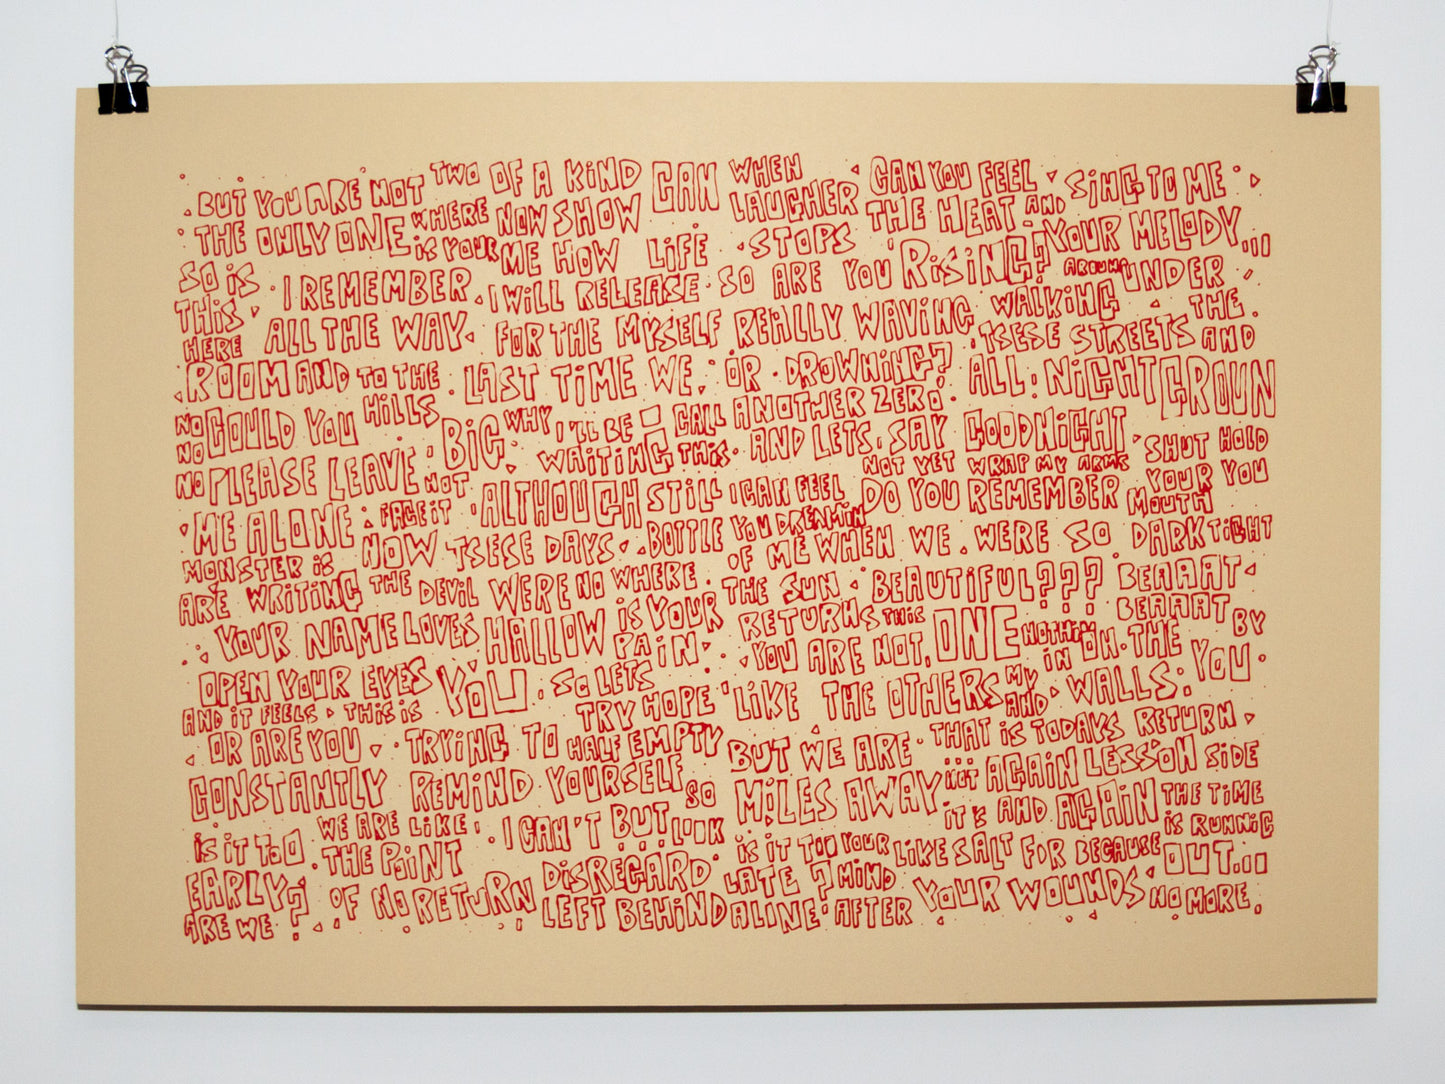 BUT YOU ARE NOT TWO OF A KIND CAN WHEN CAN YOU FEEL SING TO ME
THE ONLY ONE WHERE NOW SHOW LAUGHER THE HEAT AND YOUR MELODY...
SO IS IS YOUR ME HOW LIFE STOPS RISING? AROUND UNDER
THIS I REMEMBER I WILL RELEASE SO ARE YOU WALKING THE
HERE ALL THE WAY FOR THE MYSELF REALLY WAVING TSESE STREETS AND
ROOM AND TO THE LAST TIME WE OR DROWNING? ALL NIGHT GROUN
NO COULD YOU HILLS BIG WHY I'LL BE CALL ANOTHER ZERO GOODNIGHT
NO PLEASE LEAVE WAITING THIS AND LETS SAY SHUT HOLD
NO NOT ALTHOUGH STILL I CAN FEEL NOT YET WRAP MY ARMS YOUR YOU
ME ALONE FACE IT BOTTLE YOU DREAMIN DO YOU REMEMBER MOUTH
MONSTER IS NOW TSESE DAYS OF ME WHEN WE WERE SO DARK TIGHT
ARE WRITING THE DEVIL WERE NO WHERE THE SUN BEAUTIFUL??? BEAAAT
YOUR NAME LOVES HALLOW IS YOUR RETURNS THIS ONE NOTHIN BEAAAT BY
OPEN YOUR EYES YOU PAIN YOU ARE NOT IN OH THE YOU
AND IT FEELS THIS IS SO LETS LIKE THE OTHERS MY AND WALLS
OR ARE YOU TRYING TO TRY HOPE BUT WE ARE THAT IS TODAYS RETURN
CONSTANTLY REMIND YOURSELF HALF EMPTY MILES AWAY NOT AGAIN LESSON SIDE
IS IT TOO WE ARE LIKE I CAN'T BUT SO LOOK IT'S AND AGAIN THE TIME
EARLY? THE POINT DISREGARD IS IT TOO YOUR LIKE SALT FOR BECAUSE IS RUNNIG
ARE WE? OF NO RETURN LEFT BEHIND LATE? MIND YOUR WOUNDS OUT...
ALINE AFTER NO MORE.